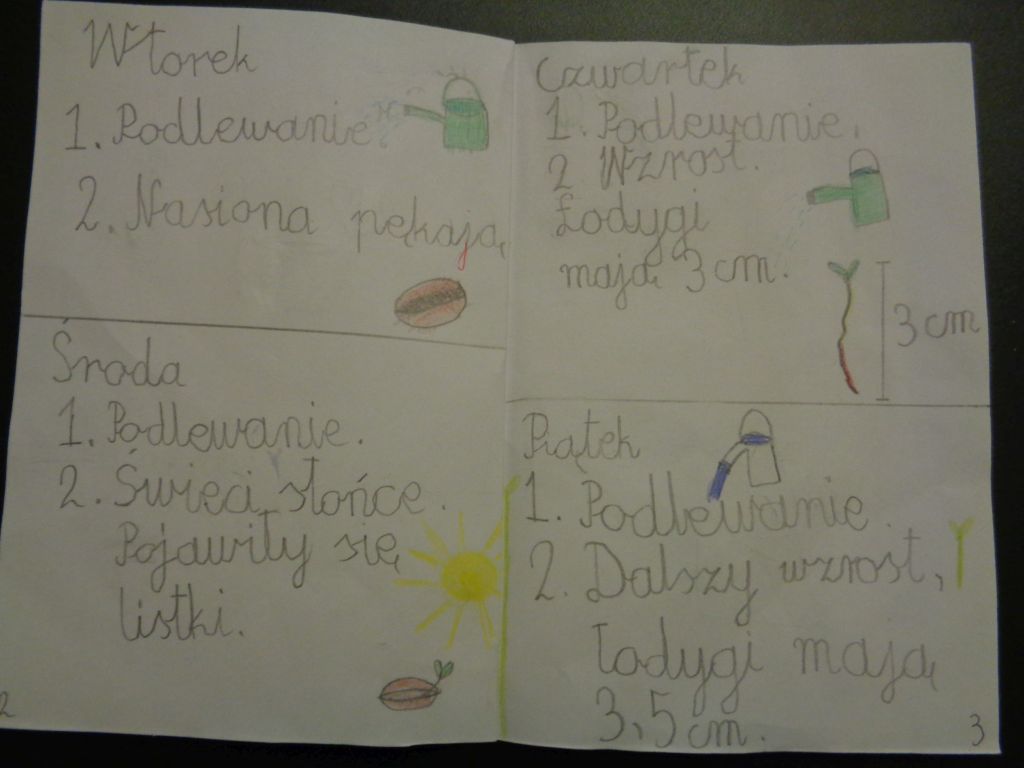 Wtorek
1. Podlewanie.
2. Nasiona pękają
Środa
1. Podlewanie.
2. Świeci słońce.
Pojawiły się
listki.
2
Czwartek
1. Podlewanie.
2 Wzrost.
Łodygi
mają 3 cm.
3 cm
Piątek
1. Podlewanie.
2. Dalszy wzrost,
łodygi mają
3,5 cm.
3